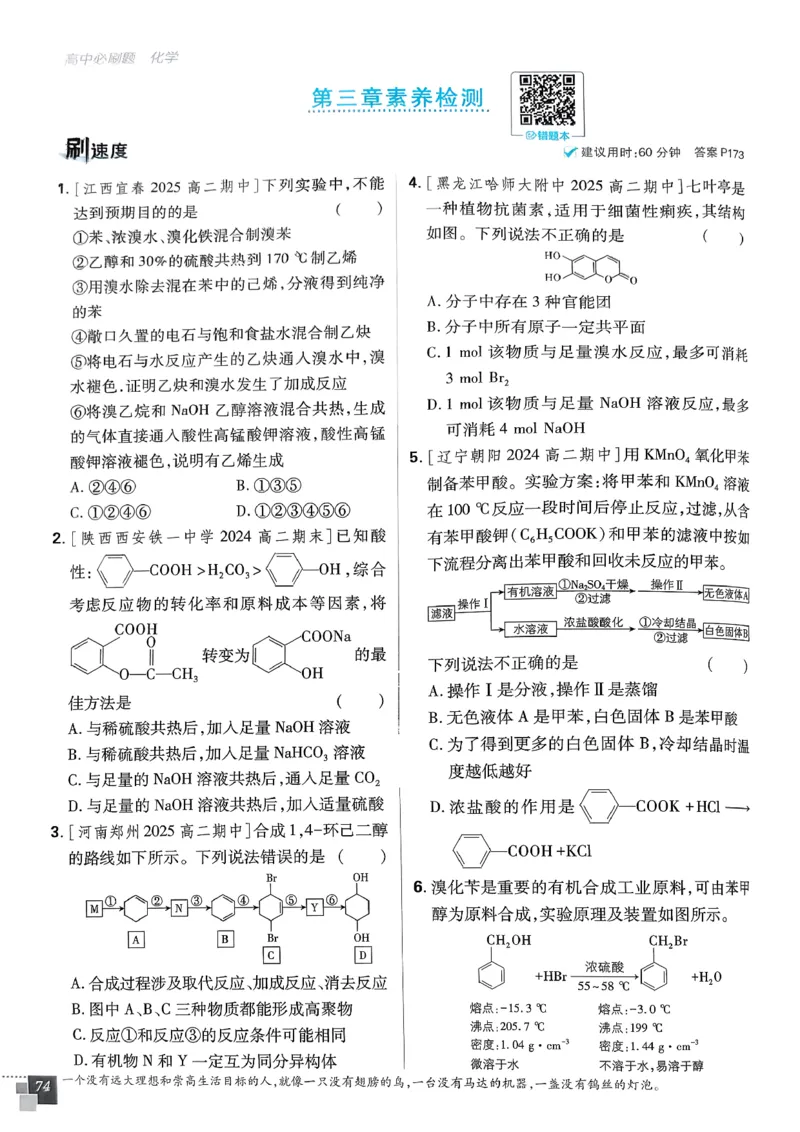 高中必刷题 化学
第三章素养检测
错题本
刷速度
建议用时:60分钟 答案P173
1. [江西宜春 2025 高二期中]下列实验中,不能
达到预期目的的是 ( )
①苯、浓溴水、溴化铁混合制溴苯
②乙醇和30%的硫酸共热到170 ℃制乙烯
③用溴水除去混在苯中的己烯,分液得到纯净
的苯
④敞口久置的电石与饱和食盐水混合制乙炔
⑤将电石与水反应产生的乙炔通入溴水中,溴
水褪色.证明乙炔和溴水发生了加成反应
⑥将溴乙烷和 NaOH 乙醇溶液混合共热,生成
的气体直接通入酸性高锰酸钾溶液,酸性高锰
酸钾溶液褪色,说明有乙烯生成
A. ②④⑥ B. ①③⑤
C. ①②④⑥ D. ①②③④⑤⑥
2. [陕西西安铁一中学 2024 高二期末]已知酸
性: —COOH >H₂CO₃> —OH ,综合
考虑反应物的转化率和原料成本等因素,将
COOH
O
O—C—CH₃
转变为
COONa
OH
的最
佳方法是 ( )
A. 与稀硫酸共热后,加入足量 NaOH 溶液
B. 与稀硫酸共热后,加入足量 NaHCO₃ 溶液
C. 与足量的 NaOH 溶液共热后,通入足量 CO₂
D. 与足量的 NaOH 溶液共热后,加入适量硫酸
3. [河南郑州 2025 高二期中]合成1,4-环己二醇
的路线如下所示。下列说法错误的是 ( )
Br OH
M ① ② N ③ ④ ⑤ Y ⑥
A B Br OH
C D
A. 合成过程涉及取代反应、加成反应、消去反应
B. 图中 A、B、C 三种物质都能形成高聚物
C. 反应①和反应③的反应条件可能相同
D. 有机物 N 和 Y 一定互为同分异构体
4. [黑龙江哈师大附中 2025 高二期中]七叶亭是
一种植物抗菌素,适用于细菌性痢疾,其结构
如图。下列说法不正确的是 ( )
HO
HO O O
A. 分子中存在 3 种官能团
B. 分子中所有原子一定共平面
C. 1 mol 该物质与足量溴水反应,最多可消耗
3 mol Br₂
D. 1 mol 该物质与足量 NaOH 溶液反应,最多
可消耗 4 mol NaOH
5. [辽宁朝阳 2024 高二期中]用 KMnO₄ 氧化甲苯
制备苯甲酸。实验方案:将甲苯和 KMnO₄ 溶液
在 100 ℃反应一段时间后停止反应,过滤,从含
有苯甲酸钾(C₆H₅COOK)和甲苯的滤液中按如
下流程分离出苯甲酸和回收未反应的甲苯。
滤液 操作Ⅰ 有机溶液 ①Na₂SO₄干燥 ②过滤 操作Ⅱ 无色液体A
水溶液 浓盐酸酸化 ①冷却结晶 ②过滤 白色固体B
下列说法不正确的是 ( )
A. 操作Ⅰ是分液,操作Ⅱ是蒸馏
B. 无色液体 A 是甲苯,白色固体 B 是苯甲酸
C. 为了得到更多的白色固体 B,冷却结晶时温
度越低越好
D. 浓盐酸的作用是 —COOK +HCl ⟶
—COOH +KCl
6. 溴化苄是重要的有机合成工业原料,可由苯甲
醇为原料合成,实验原理及装置如图所示。
CH₂OH CH₂Br
+HBr 浓硫酸 55~58 ℃ +H₂O
熔点:-15.3 ℃ 熔点:-3.0 ℃
沸点:205.7 ℃ 沸点:199 ℃
密度:1.04 g·cm⁻³ 密度:1.44 g·cm⁻³
微溶于水 不溶于水,易溶于醇
74 一个没有远大理想和崇高生活目标的人,就像一只没有翅膀的鸟,一台没有马达的机器,一盏没有钨丝的灯泡。